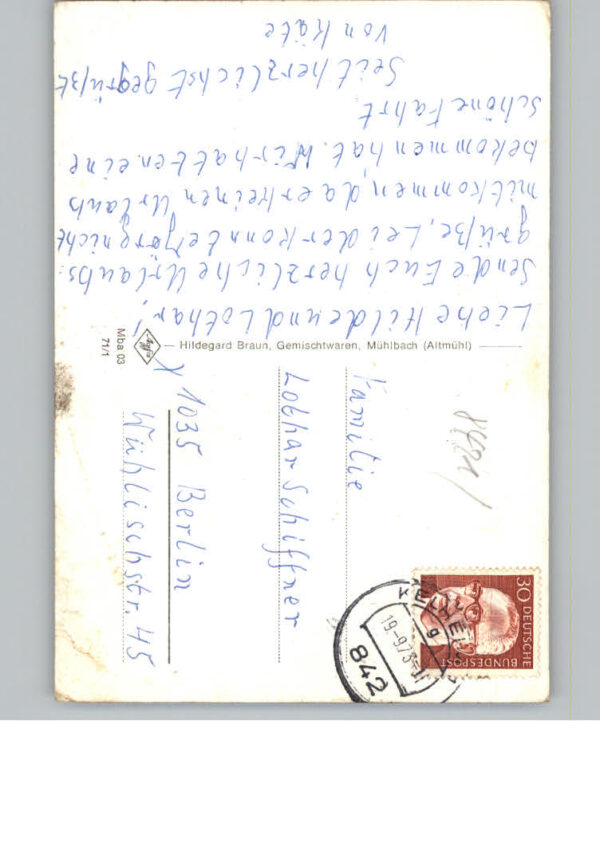 Liebe Hilde und Lothar!
Sende Euch herzliche Urlaubs-
grüße. Leider konnte Jörg nicht
mitkommen, da er keinen Urlaub
bekommen hat. Wir hatten eine
schöne Fahrt.
Seit herzlichst gegrüßt
von Käte
Hildegard Braun, Gemischtwaren, Mühlbach (Altmühl)
Agfa
Mba 03
71/1
Familie
Lothar Schiffner
X 1035 Berlin
Wühlischstr. 45
30 DEUTSCHE
BUNDESPOST
842
19-9.73
g